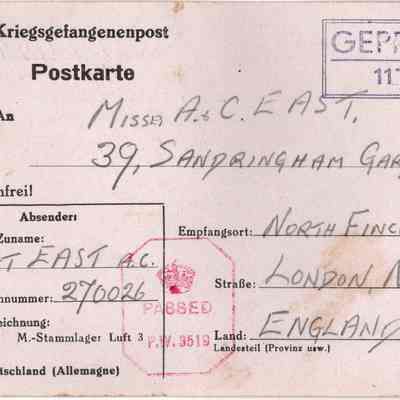 Kriegsgefangenenpost
Postkarte
GEPR
117
An
MISSES A. & C. EAST.
39, SANDRINGHAM GAR
nfrei!
Absender:
Zuname:
T EAST A.C.
nnummer: 270026
eichnung:
M.-Stammlager Luft 3
utschland (Allemagne)
PASSED
P.W. 9519
Empfangsort: NORTH FINC
Straße: LONDON, N
Land: ENGLAND
Landesteil (Provinz usw.)